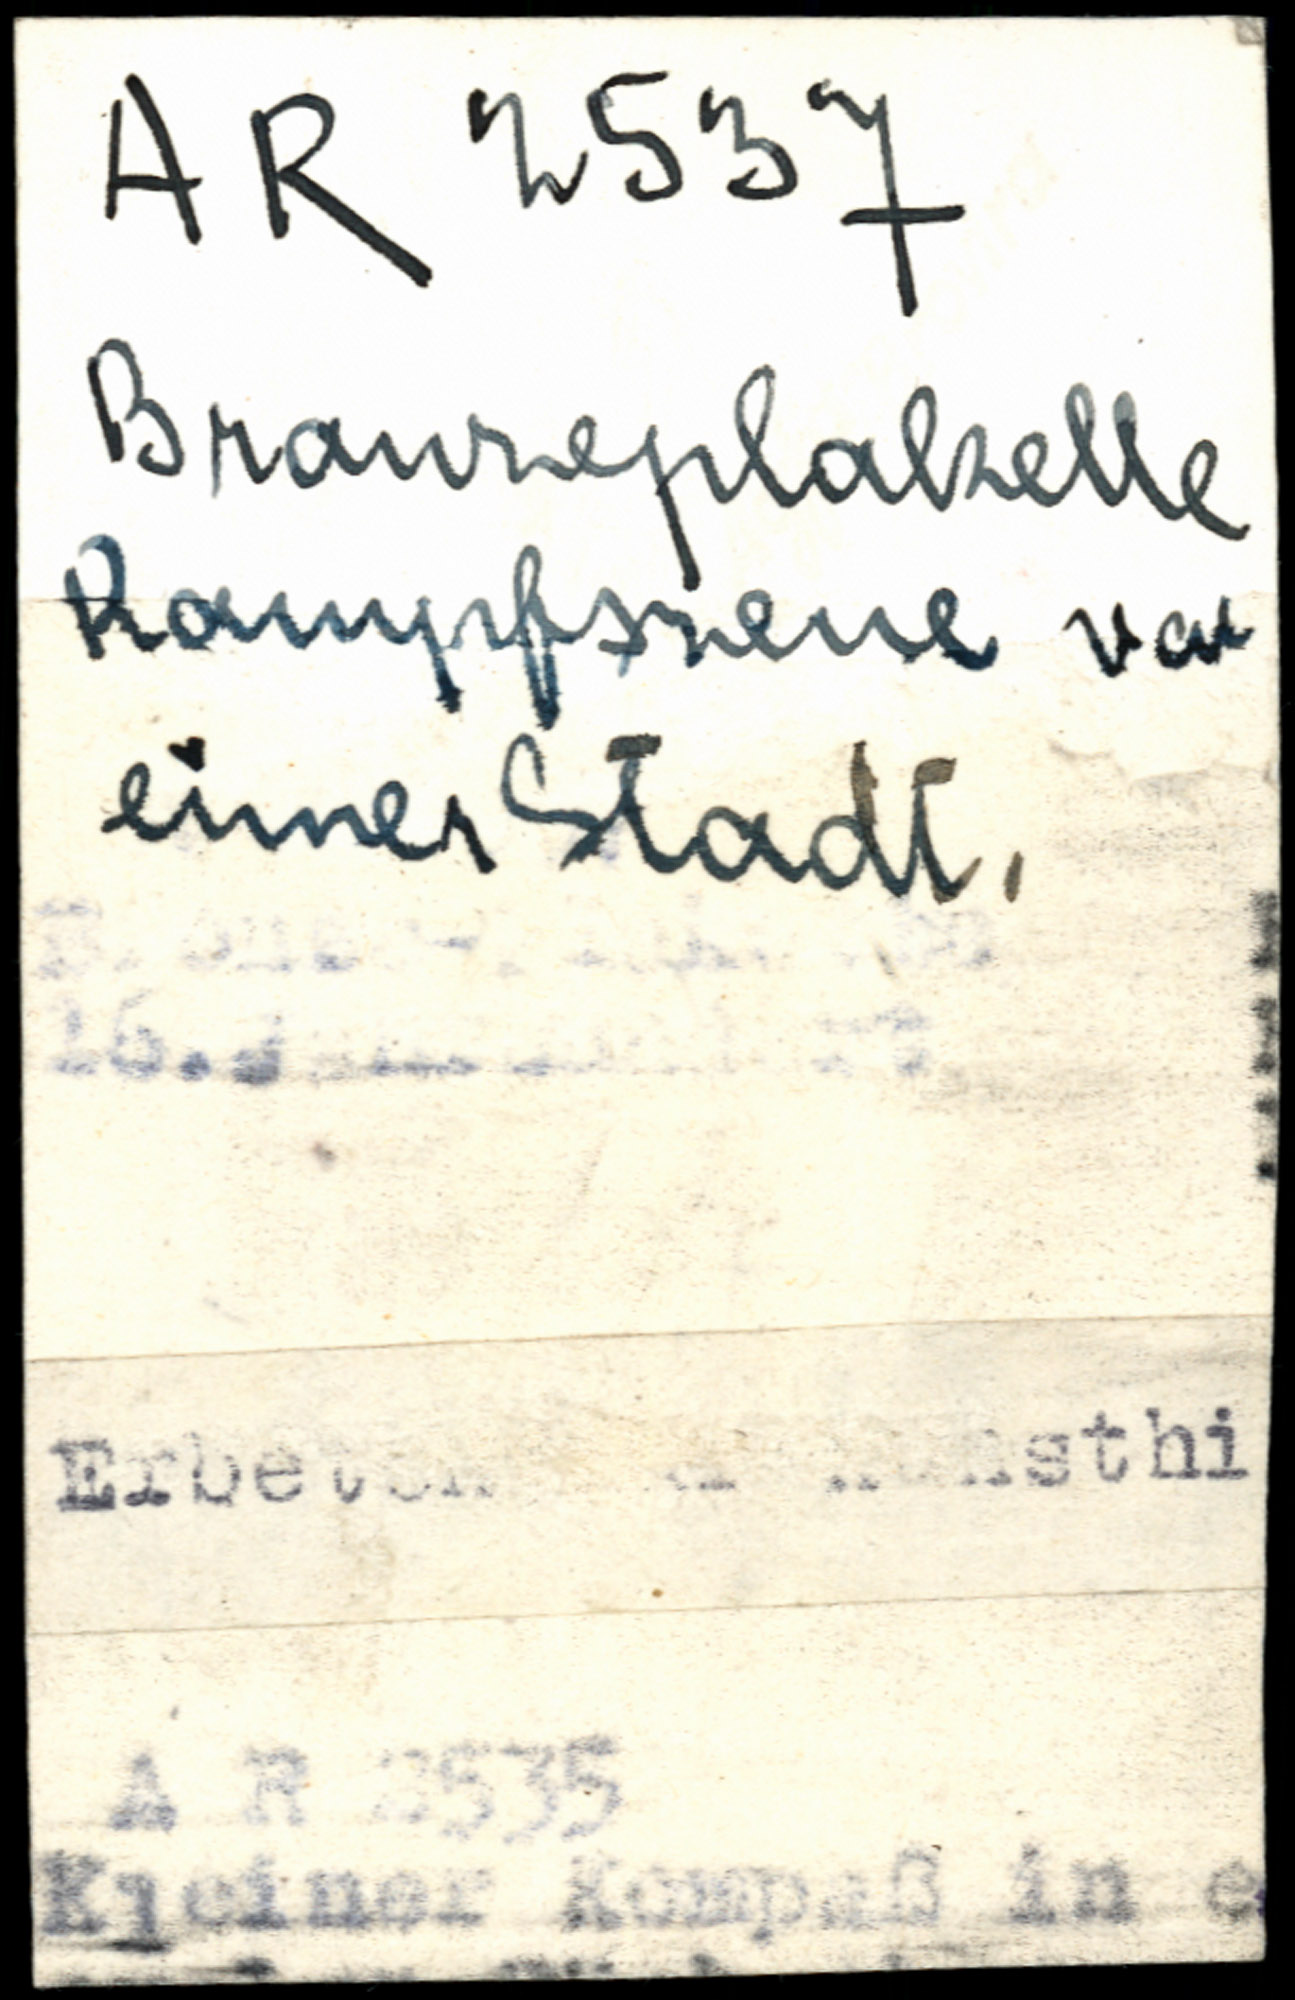 AR 2537
Bronzeplakette
Kampfszene vor
einer Stadt.
16.
Erbeten Kunsthi
A R 2535
Kleiner Kompaß in e